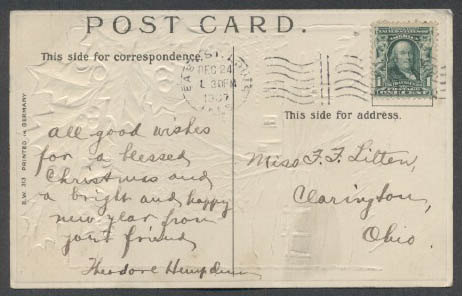 POST CARD.
This side for correspondence.
EAST ST. LOUIS
DEC 24
1907
This side for address.
S.W. 313 PRINTED IN GERMANY
all good wishes
for a blessed
Christmas and
a bright and happy
new year from
your friend
Theodore
Miss F. F. Litten,
Clarington,
Ohio.
ONE CENT